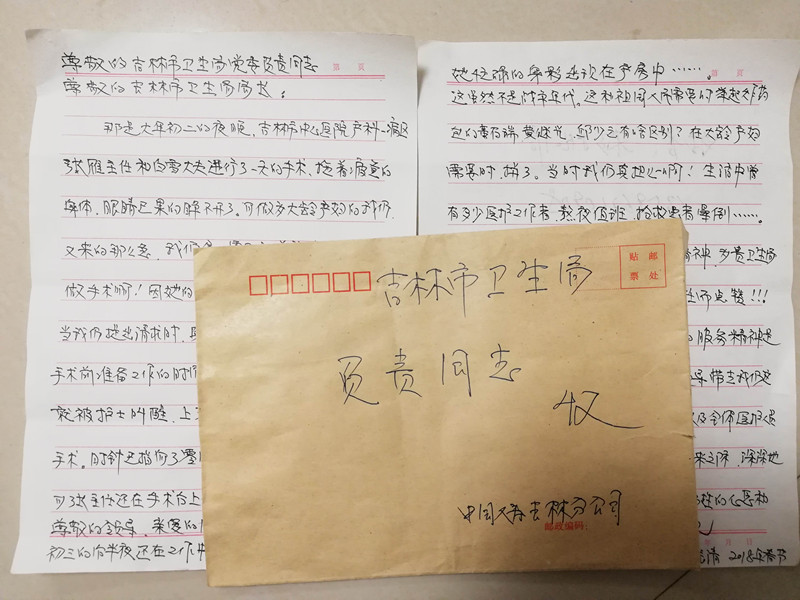 第 页
尊敬的吉林市卫生局党委负责同志
尊敬的吉林市卫生局局长：
那是大年初二的夜晚，吉林市中心医院产科一病区
张雁主任和白雪大夫进行了一天的手术，拖着疲惫的
身体，眼睛已累的睁不开了。可做为大龄产妇的我们，
又来的那么急，我们
做手术啊！因她的
当我们提出请求时，
手术前准备工作的时
就被护士叫醒，上
手术。时钟已指向了零
可张主任还在手术台上
尊敬的领导，亲爱的
初三的后半夜还在工作中
第 页
她忙碌的身影出现在产房中……。
这虽然不是战争年代。这和祖国人民需要时举起炸药
包的董存瑞黄继光，邱少云有啥区别？在大龄产妇
需要时，捎了。当时我们真担心啊！生活中曾
有多少医护工作者，熬夜值班，抢救患者晕倒……。
神，为贵卫生局
点赞!!!
的服务精神是
导带志我们
及全体医护人员
来之际，深深地
的心思和
年 月 日
2018年春节
贴 邮
票 处
吉林市卫生局
负责同志
收
中国人寿吉林分公司
邮政编码：